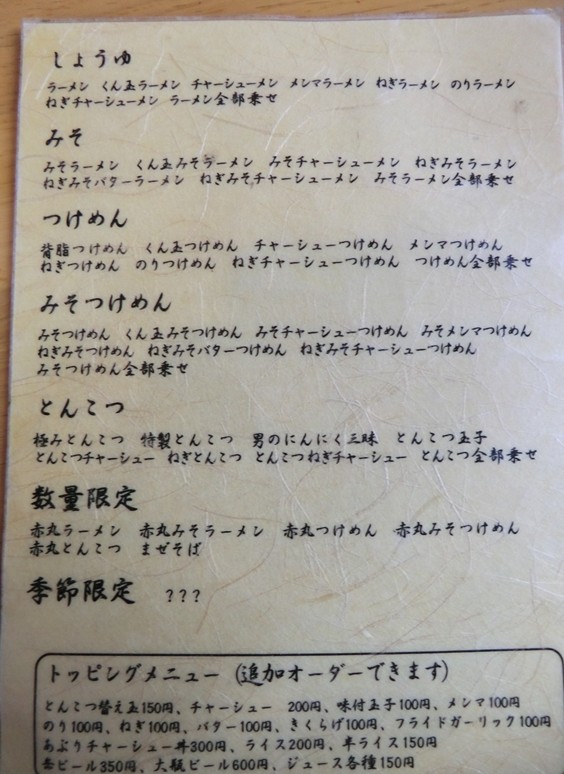 しょうゆ
ラーメン くん玉ラーメン チャーシューメン メンマラーメン ねぎラーメン のりラーメン
ねぎチャーシューメン ラーメン全部乗せ
みそ
みそラーメン くん玉みそラーメン みそチャーシューメン ねぎみそラーメン
ねぎみそバターラーメン ねぎみそチャーシューメン みそラーメン全部乗せ
つけめん
背脂つけめん くん玉つけめん チャーシューつけめん メンマつけめん
ねぎつけめん のりつけめん ねぎチャーシューつけめん つけめん全部乗せ
みそつけめん
みそつけめん くん玉みそつけめん みそチャーシューつけめん みそメンマつけめん
ねぎみそつけめん ねぎみそバターつけめん ねぎみそチャーシューつけめん
みそつけめん全部乗せ
とんこつ
極みとんこつ 特製とんこつ 男のにんにく三昧 とんこつ玉子
とんこつチャーシュー ねぎとんこつ とんこつねぎチャーシュー とんこつ全部乗せ
数量限定
赤丸ラーメン 赤丸みそラーメン 赤丸つけめん 赤丸みそつけめん
赤丸とんこつ まぜそば
季節限定 ???
トッピングメニュー (追加オーダーできます)
とんこつ替え玉150円、チャーシュー 200円、味付玉子100円、メンマ100円
のり100円、ねぎ100円、バター100円、きくらげ100円、フライドガーリック100円
あぶりチャーシュー丼300円、ライス200円、半ライス150円
缶ビール350円、大瓶ビール600円、ジュース各種150円